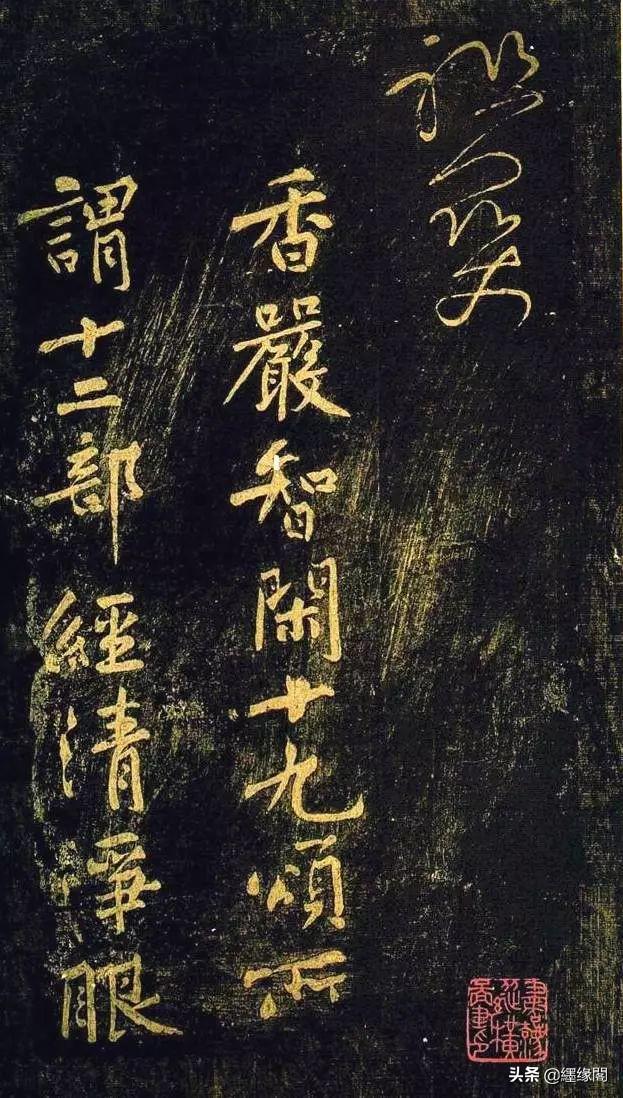 香嚴智閑十九頌所
謂十二部經清淨眼
头条 @纆缘閣